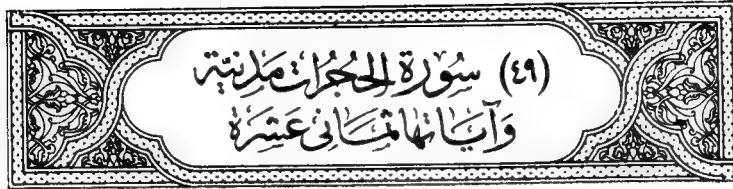 (٤٩) سُورَةُ الحُجُرَاتِ مَدَنِيَّة
وَآيَاتهَا ثَمَانِى عَشرَة